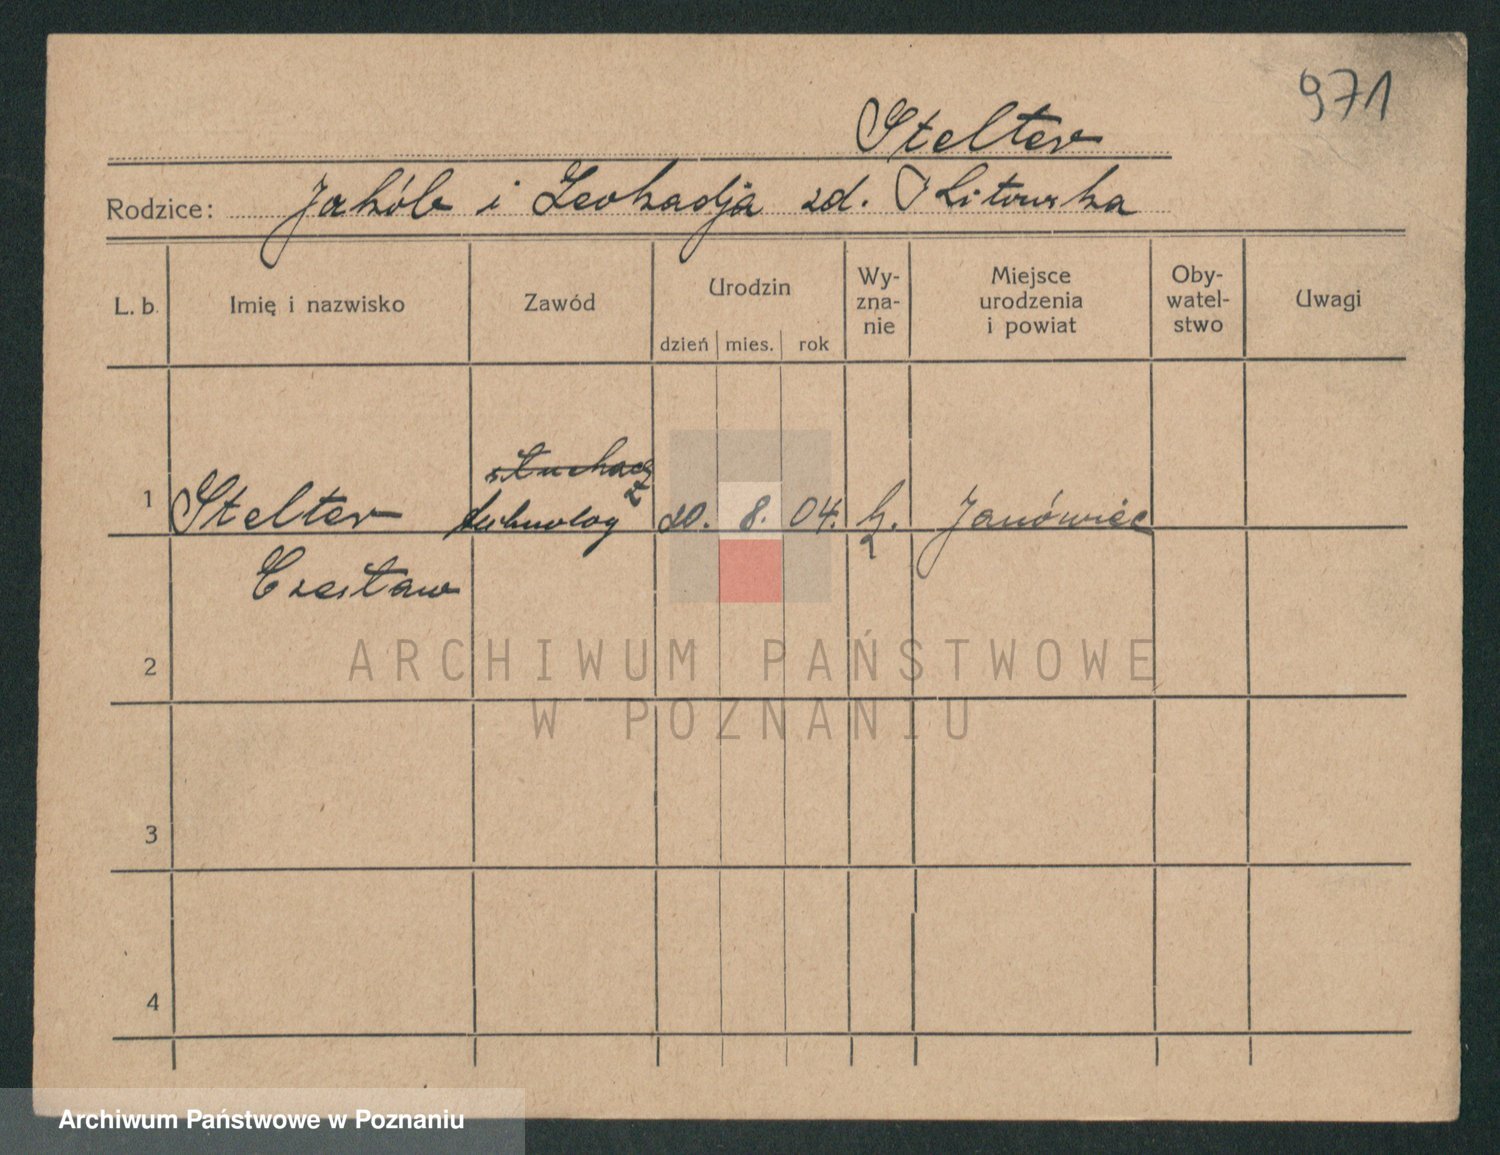 971
Stelter
Rodzice: Jakób i Leokadja zd.
L. b. Imię i nazwisko Zawód Urodzin dzień mies. rok Wy-zna-nie Miejsce urodzenia i powiat Oby-watel-stwo Uwagi
słuchacz
1 Stelter technolog 20. 8. 04. Janówiec
Czesław
2
3
4
ARCHIWUM PAŃSTWOWE
W POZNANIU
Archiwum Państwowe w Poznaniu